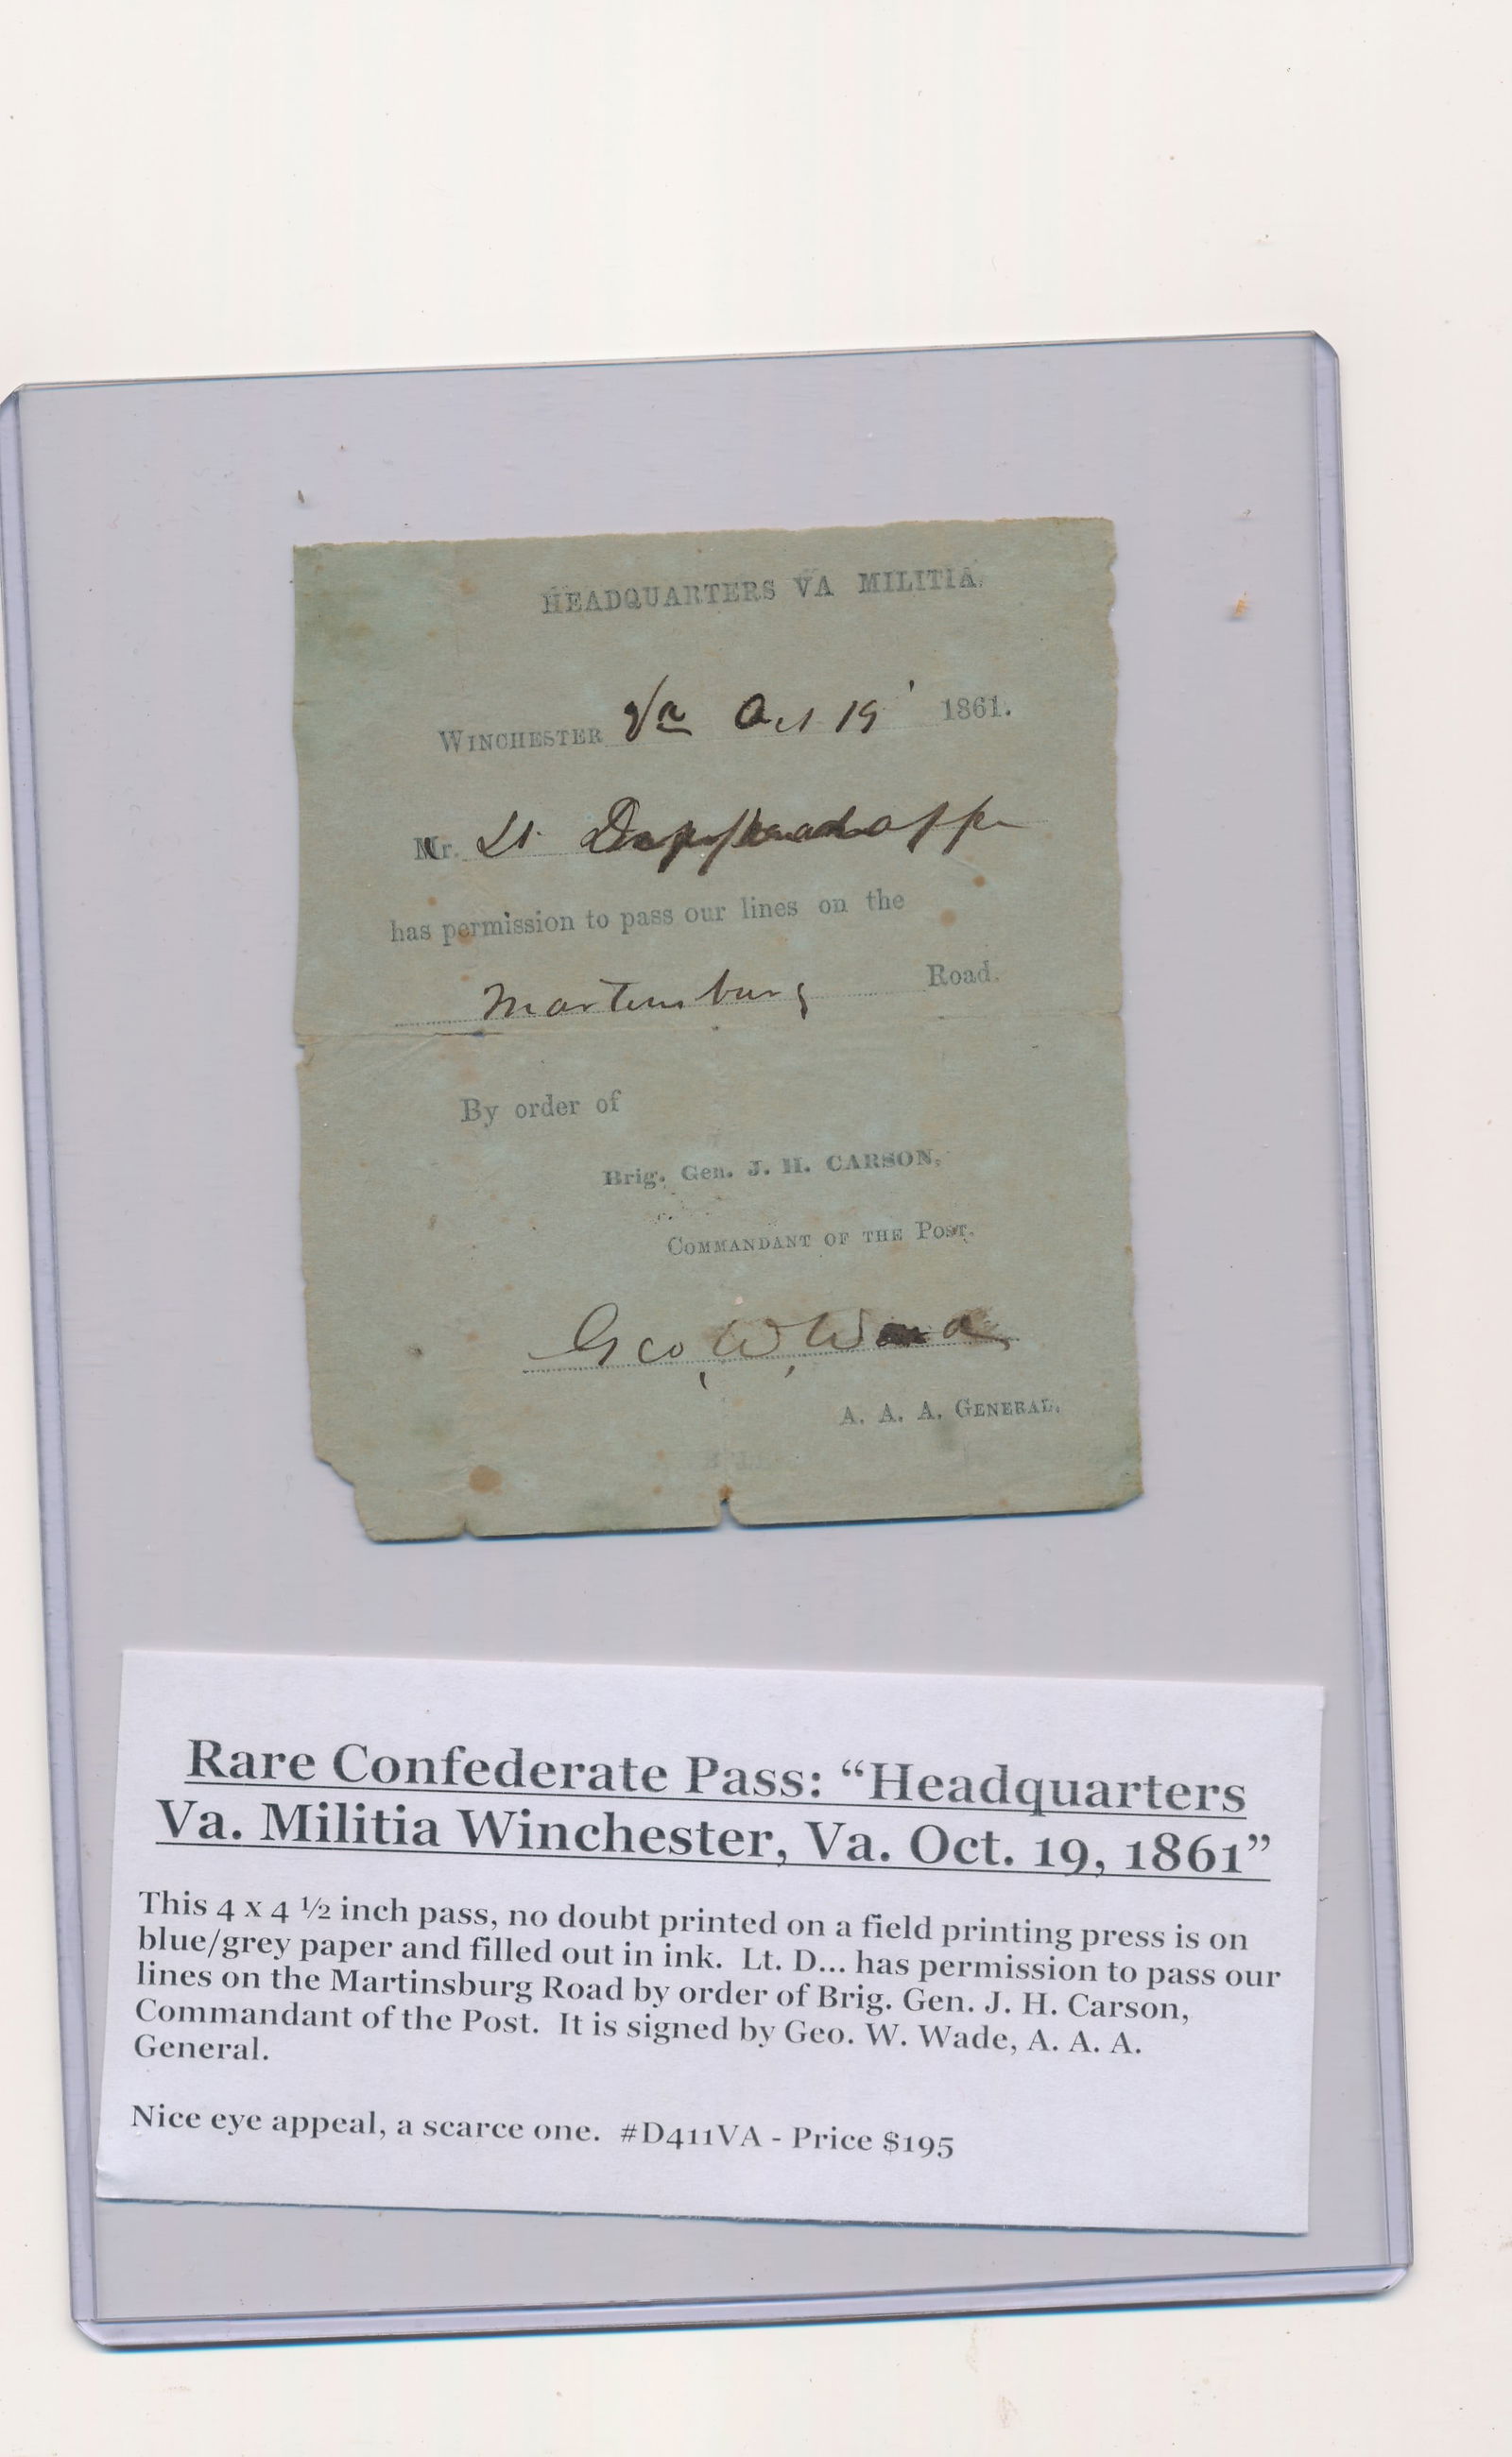 HEADQUARTERS VA MILITIA,
WINCHESTER Va Oct 19 1861.
Mr. Lt
has permission to pass our lines on the
Martinsburg Road.
By order of
Brig. Gen. J. H. CARSON,
COMMANDANT OF THE POST.
Geo, W, 
A. A. A. GENERAL.
Rare Confederate Pass: “Headquarters
Va. Militia Winchester, Va. Oct. 19, 1861”
This 4 x 4 ½ inch pass, no doubt printed on a field printing press is on
blue/grey paper and filled out in ink. Lt. D... has permission to pass our
lines on the Martinsburg Road by order of Brig. Gen. J. H. Carson,
Commandant of the Post. It is signed by Geo. W. Wade, A. A. A.
General.
Nice eye appeal, a scarce one. #D411VA - Price $195